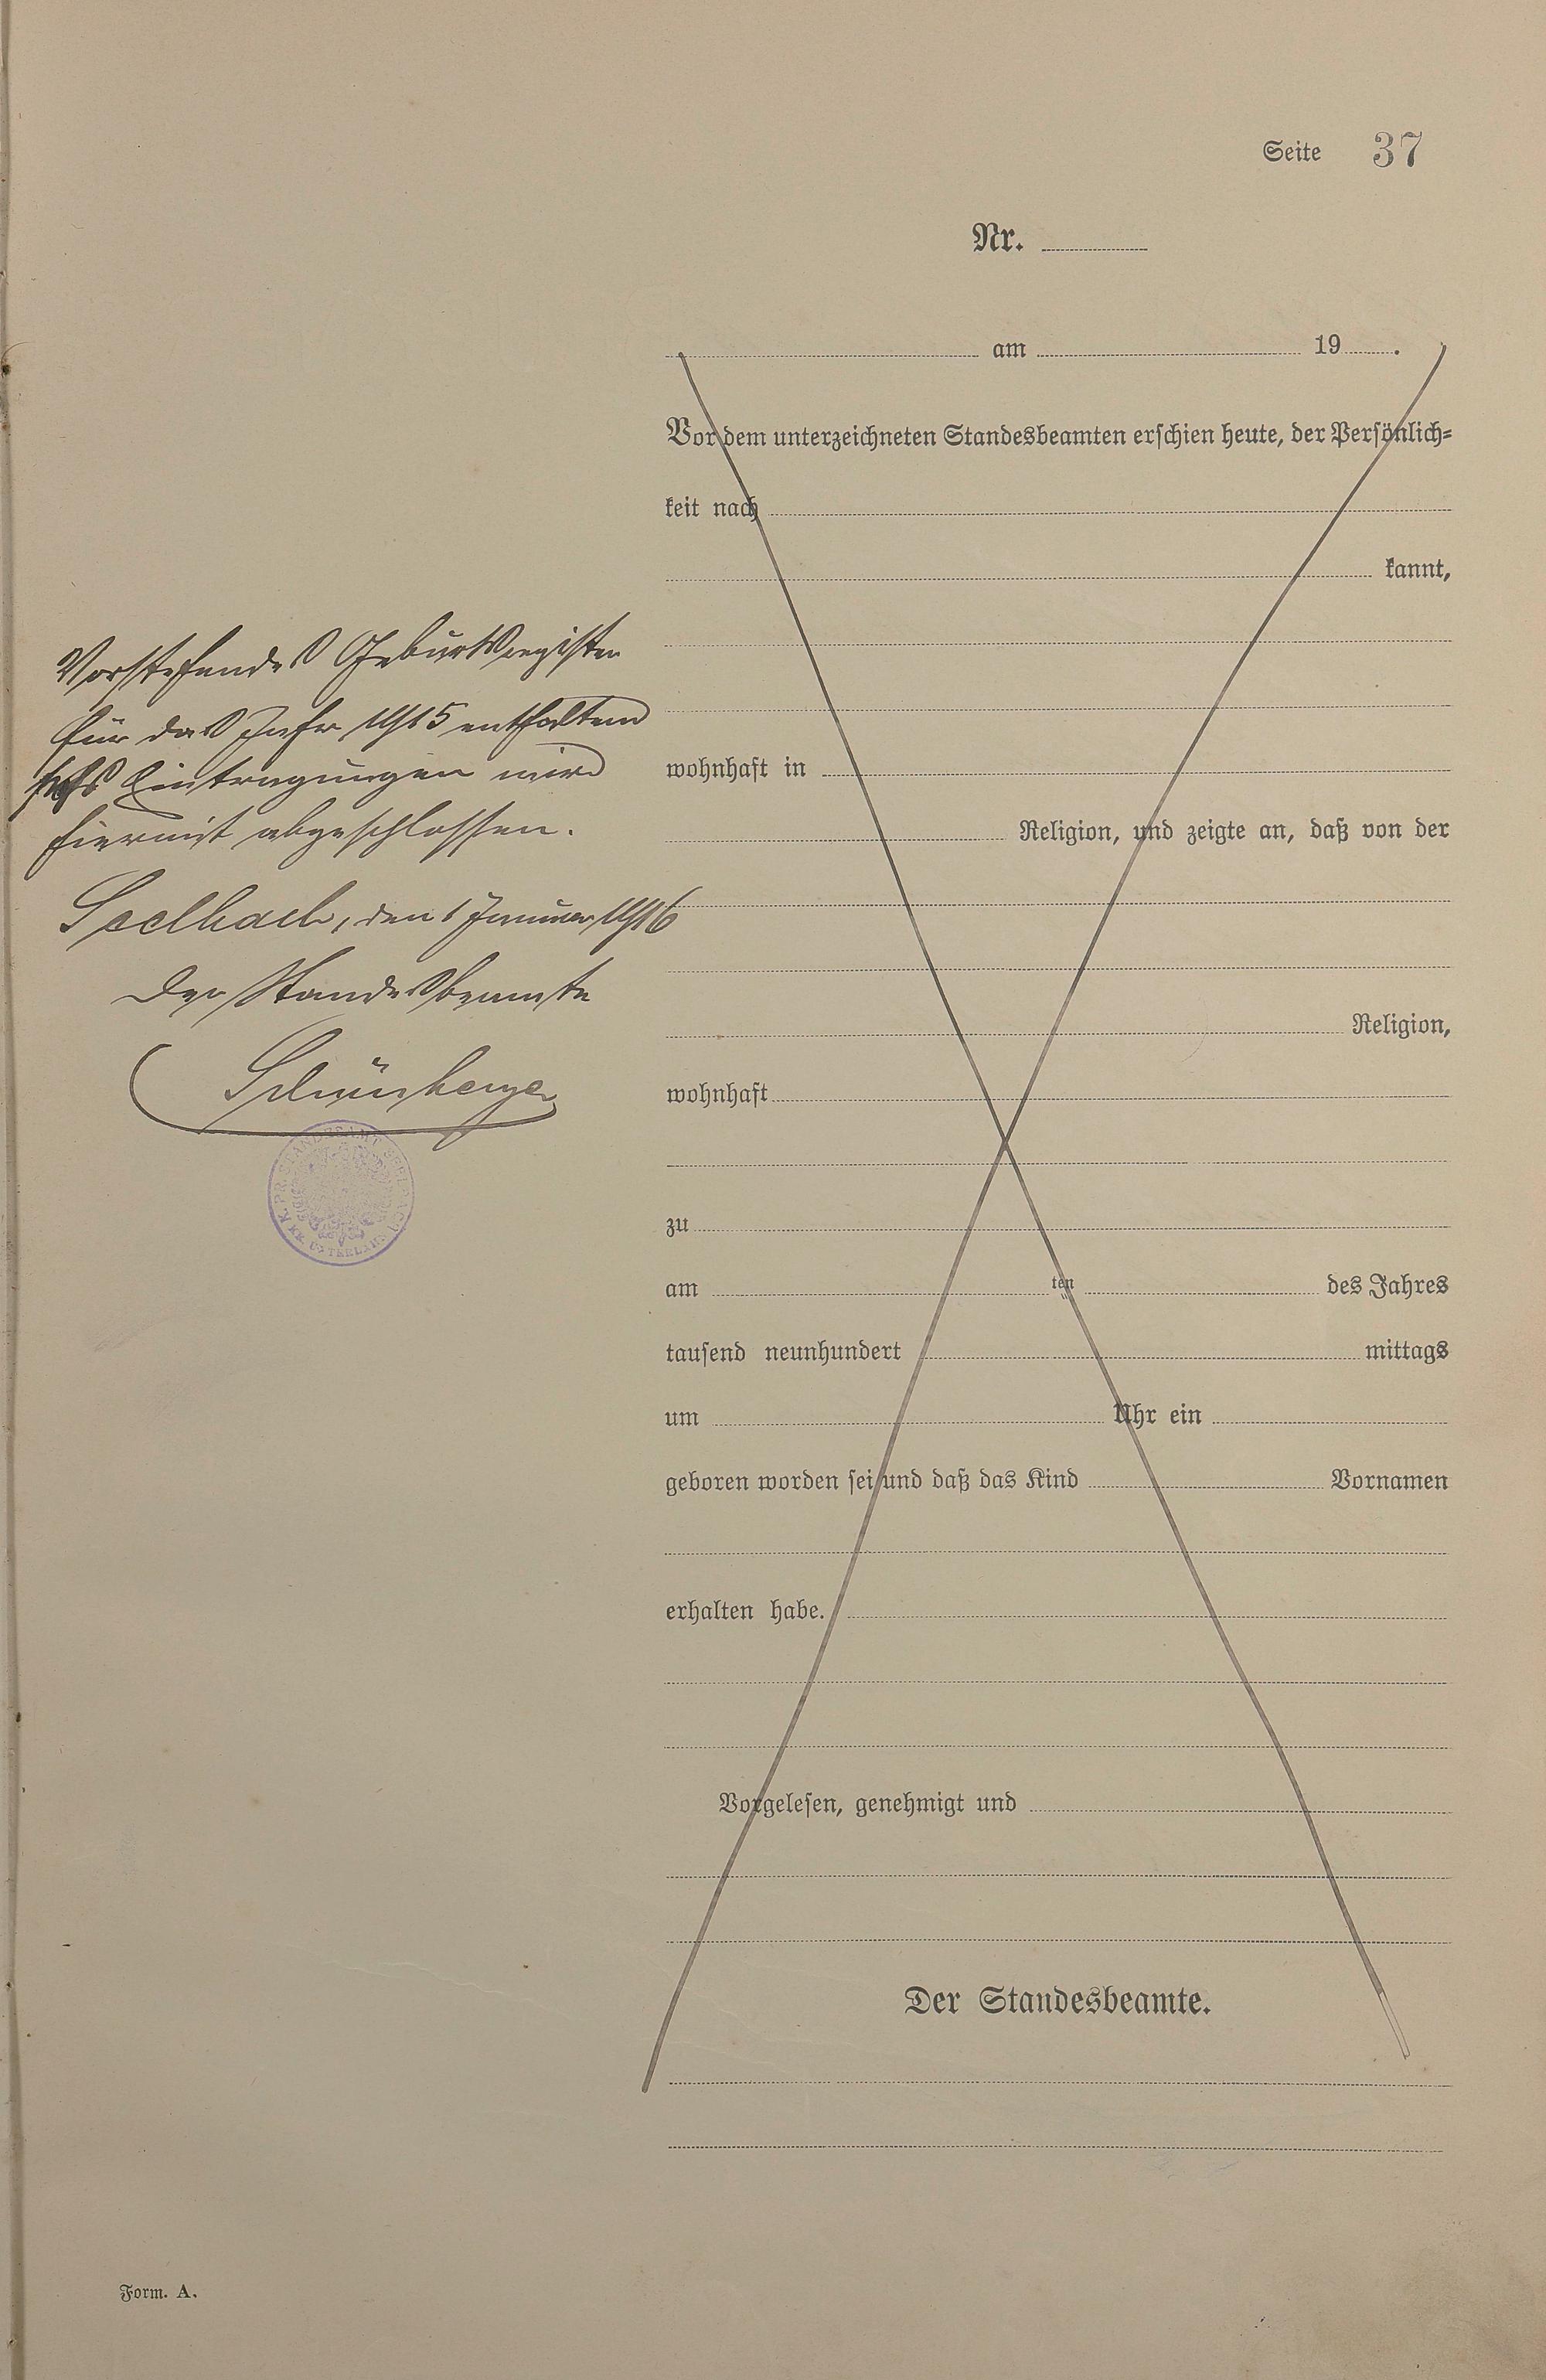 Seite 37
Nr.
am 19 .
Vor dem unterzeichneten Standesbeamten erschien heute, der Persönlich=
keit nach
kannt,
wohnhaft in
Religion, und zeigte an, daß von der
Religion,
wohnhaft
zu
am ten des Jahres
tausend neunhundert mittags
um Uhr ein
geboren worden sei und daß das Kind Vornamen
erhalten habe.
Vorgelesen, genehmigt und
Der Standesbeamte.
Vorstehendes Geburtsregister
für das Jahr 1915 enthaltend
sechs Eintragungen wird
hiermit abgeschlossen.
Seelbach, den 1 Januar 1916
Der Standesbeamte
Form. A.